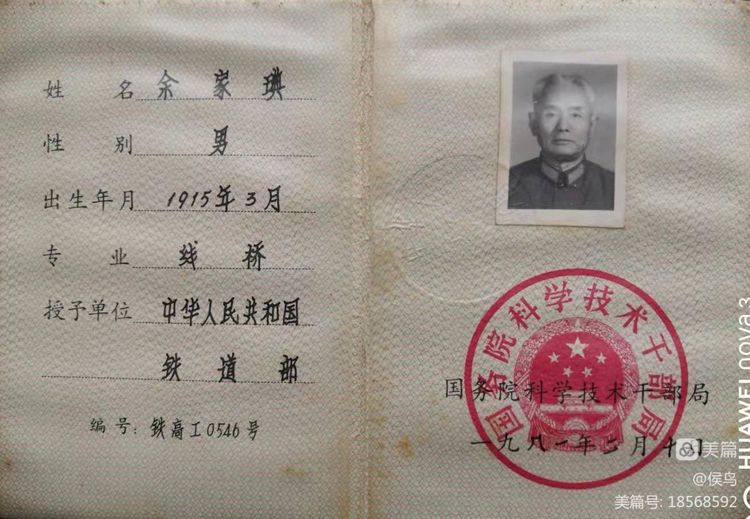 姓名 余家琠
性别 男
出生年月 1915年3月
专业 线桥
授予单位 中华人民共和国
铁道部
编号：铁高工0546号
国务院科学技术干部局
国务院科学技术干部局
一九八一年二月十日
美篇
@侯鸟
美篇号: 18568592
HUAWEI nova 3